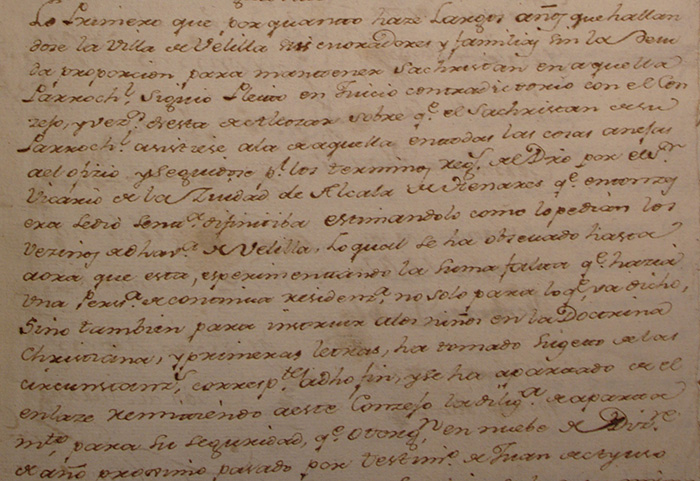 Lo Primero que por quanto haze Largos años que hallan
dose la Villa de Velilla sus moradores y familias sin la devi
da proporcion, para mantener Sachristan en aquella
Parroch.l siguio Pleito en Juicio contradictorio con el Con
zejo, y vez.s desta de Alozar sobre q.e el Sachristan de su
Parroch.l asistiese ala de aquella en todas las cosas anejas
a el ofizio y seguidose p.r los terminos reg.s de Dro por el S.r
Vicario de la Ziudad de Alcala de Henares q.e entonzes
era se dio Sent.a difinitiba estimandolo como lo pedian los
vezinos de dha v.a de Velilla, Lo qual se ha obseruado hasta
aora que esta, esperimentando la suma falta q.e hazia
una Pers.a de continua residenz.a no solo para lo q.e va dicho,
Sino tambien para instruir a los niños en la Doctrina
Christiana, y primeras letras, ha tomado Sugeto de las
circunstanz.s corresp.tes a dho fin, y se ha apartado de el
enlaze remitiendo a este Conzejo la dilig.a de aparta
m.to para su seguridad, q.e otorg.n en nuebe de Diz.re
de año prossimo pasado por testim.o de Juan de